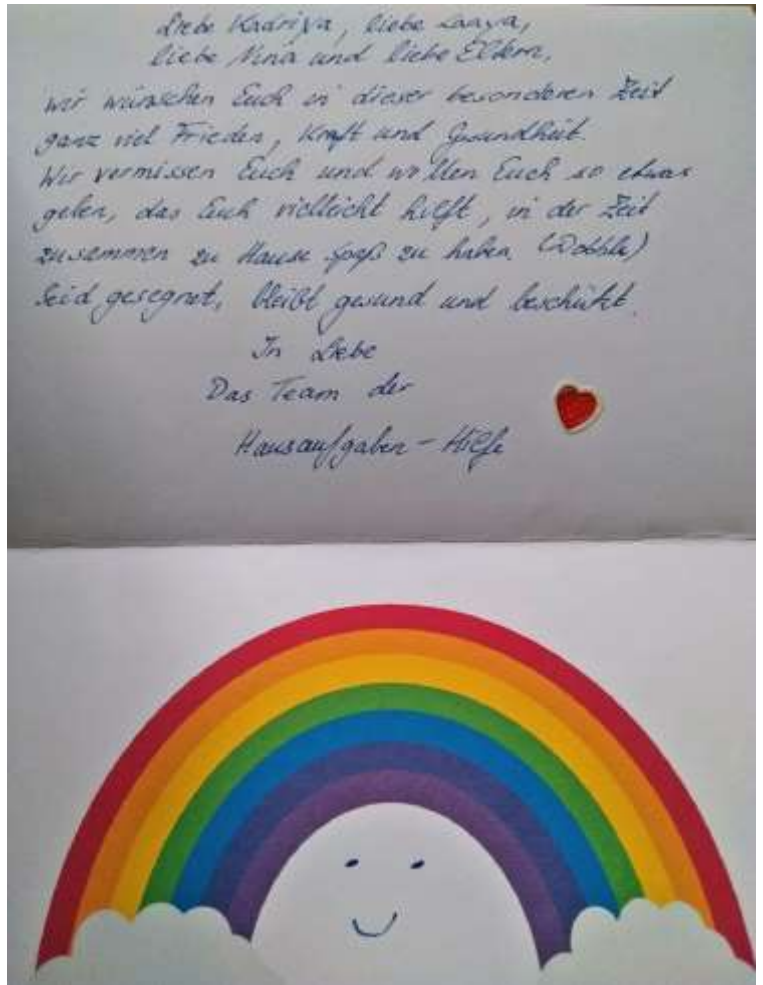 Liebe Kadriya, liebe Laaya,
liebe Nina und liebe Eltern,
wir wünschen Euch in dieser besonderen Zeit
ganz viel Frieden, Kraft und Gesundheit.
Wir vermissen Euch und wollen Euch so etwas
geben, das Euch vielleicht hilft, in der Zeit
zusammen zu Hause Spaß zu haben. (Dobble)
Seid gesegnet, bleibt gesund und beschützt.
In Liebe
Das Team der
Hausaufgaben-Hilfe